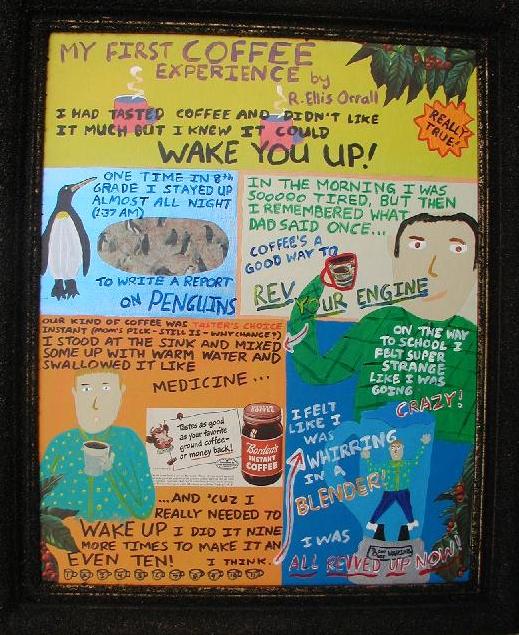 MY FIRST COFFEE
EXPERIENCE by
R. Ellis Orrall
I HAD TASTED COFFEE AND DIDN'T LIKE
IT MUCH BUT I KNEW IT COULD
WAKE YOU UP!
REALLY
TRUE!
ONE TIME IN 8TH
GRADE I STAYED UP
ALMOST ALL NIGHT
(1:37 AM)
TO WRITE A REPORT
ON PENGUINS
IN THE MORNING I WAS
SOOOOO TIRED, BUT THEN
I REMEMBERED WHAT
DAD SAID ONCE...
COFFEE'S A
GOOD WAY TO
REV YOUR ENGINE
OUR KIND OF COFFEE WAS TASTER'S CHOICE
INSTANT (MOM'S PICK-STILL IS-WHY CHANGE?)
I STOOD AT THE SINK AND MIXED
SOME UP WITH WARM WATER AND
SWALLOWED IT LIKE
MEDICINE...
Tastes as good
as your favorite
ground coffee-
or money back!
Borden's
INSTANT
COFFEE
...AND 'CUZ I
REALLY NEEDED TO
WAKE UP I DID IT NINE
MORE TIMES TO MAKE IT AN
EVEN TEN! I THINK.
ON THE WAY
TO SCHOOL I
FELT SUPER
STRANGE
LIKE I WAS
GOING
CRAZY!
I FELT
LIKE I
WAS
WHIRRING
IN A
BLENDER!
I WAS
ALL REVVED UP NOW!